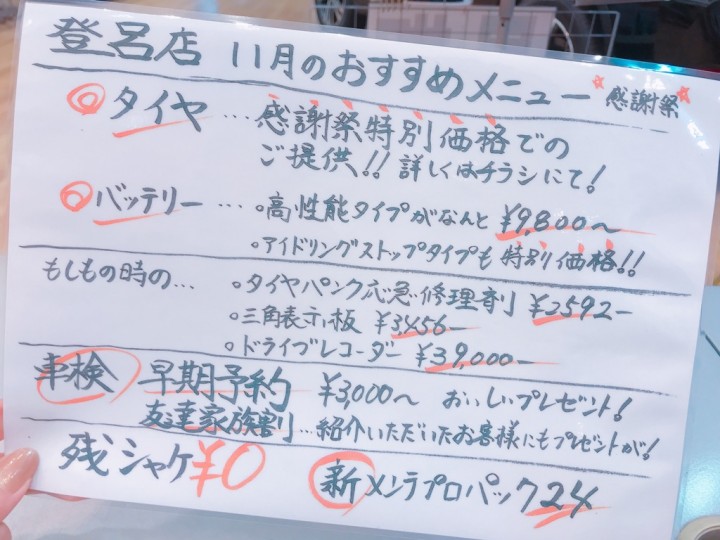 登呂店 11月のおすすめメニュー 感謝祭
◎タイヤ…感謝祭特別価格での
ご提供!!詳しくはチラシにて!
◎バッテリー…。高性能タイプがなんと ¥9,800〜
。アイドリングストップタイプも 特別価格!!
もしもの時の… 。タイヤパンク応急修理剤 ¥2592−
。三角表示板 ¥3456−
。ドライブレコーダー ¥39,000−
車検 早期予約 ¥3,000〜 おいしいプレゼント!
友達家族割…紹介いただいたお客様にもプレゼントが!
残シャケ¥0 新メンテプロパック24